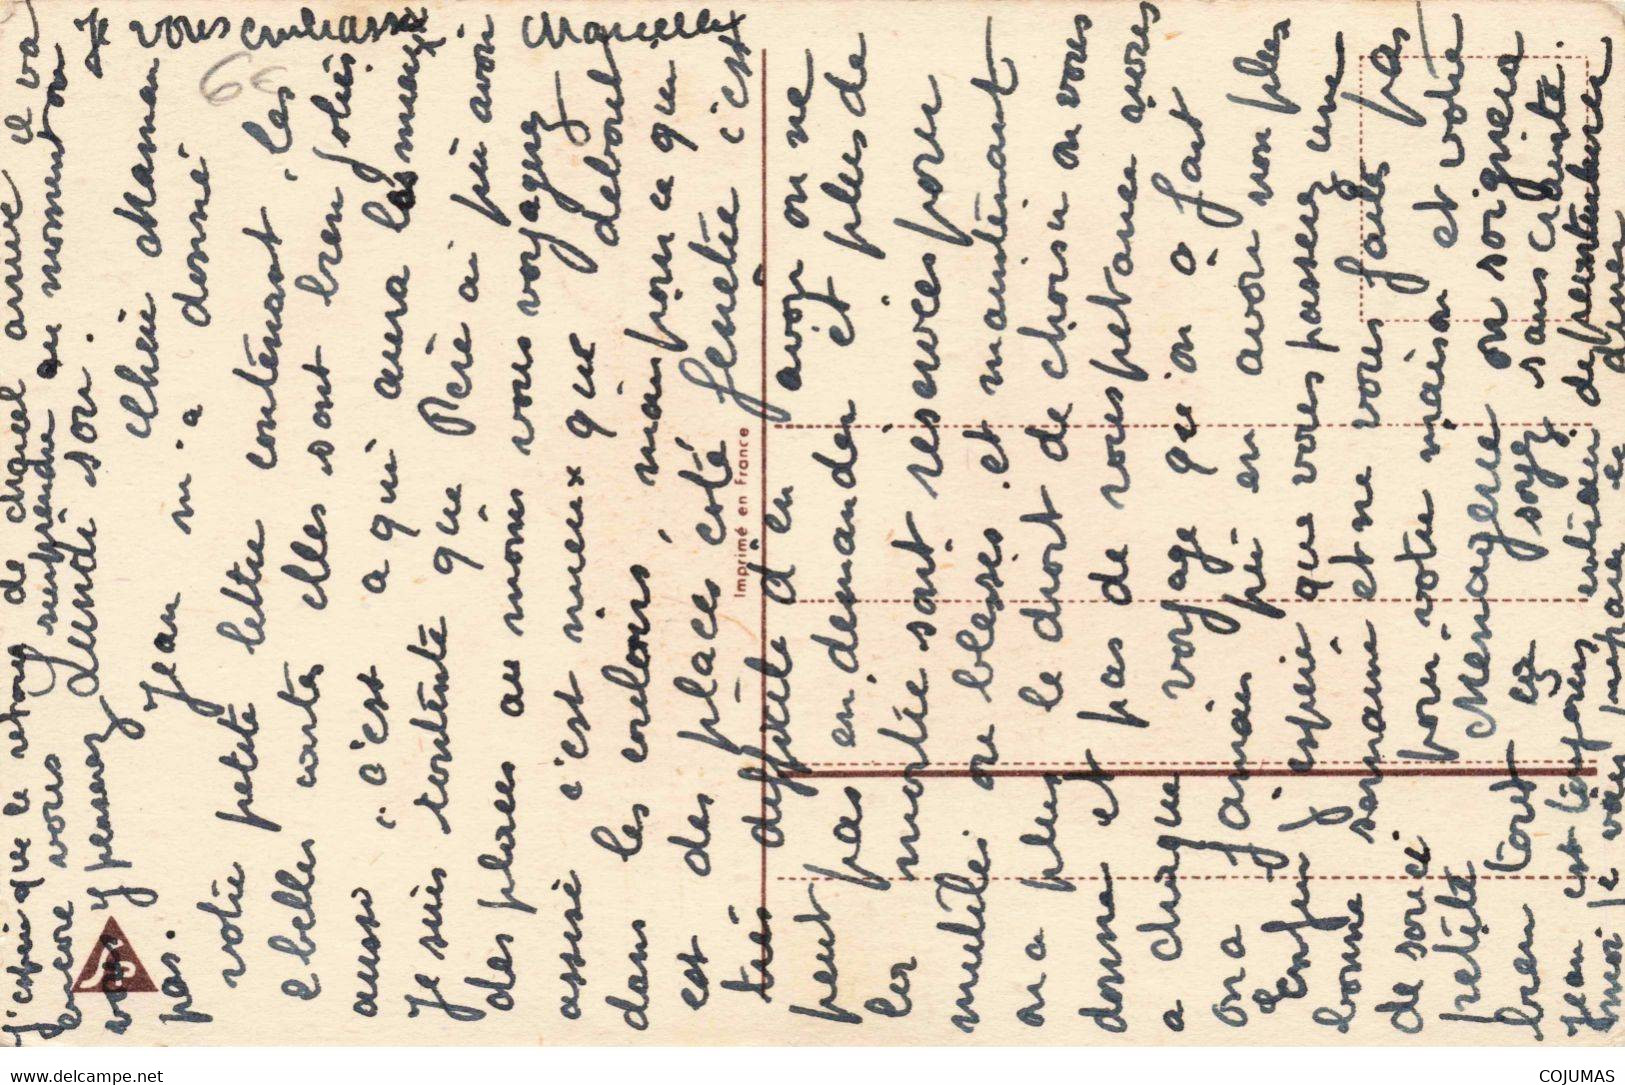 Lundi soir.
Chère Maman
Jean m'a donné
votre petite lettre contenant les
belles cartes elles sont bien jolies
aussi .. c'est a qui aura las mieux
Je suis contente que Père ai pu avoir
des places au moins vous voyagez
assise c'est mieux que debout
dans les couloirs, mais pour ce qu
est des places coté fenêtre c'est
très difficile d'en avoir on ne
peut pas en demander et plus de
la moitié sont réservées pour
mutilés ou blessés et maintenant
on a plus le droit de choisir on vous
donne et pas de rouspetance
a chaque voyage qu'on a fait
on a jamais pu en avoir non plus
Enfin j'espère que vous passez une
bonne semaine et ne vous faites pas
de souci pour votre maison et votre
petite Ménagerie on soignera
bien tout ça soyez sans crainte.
Jean est toujours entrain de
moi je vais préparer le diner
J'espère que le voyage de
encore vous
vous y pensez
pas.
Je vous embrasse Marcelle
Imprimé en France
66
delcampe.net
COJUMAS